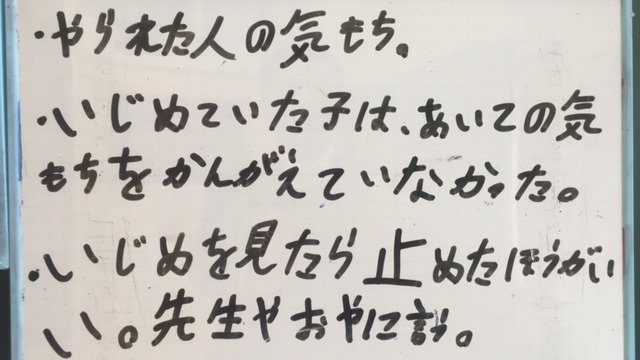 ・やられた人の気もち。
・いじめていた子は、あいての気
もちをかんがえていなかった。
・いじめを見たら止めたほうがい
い。先生やおやに言う。